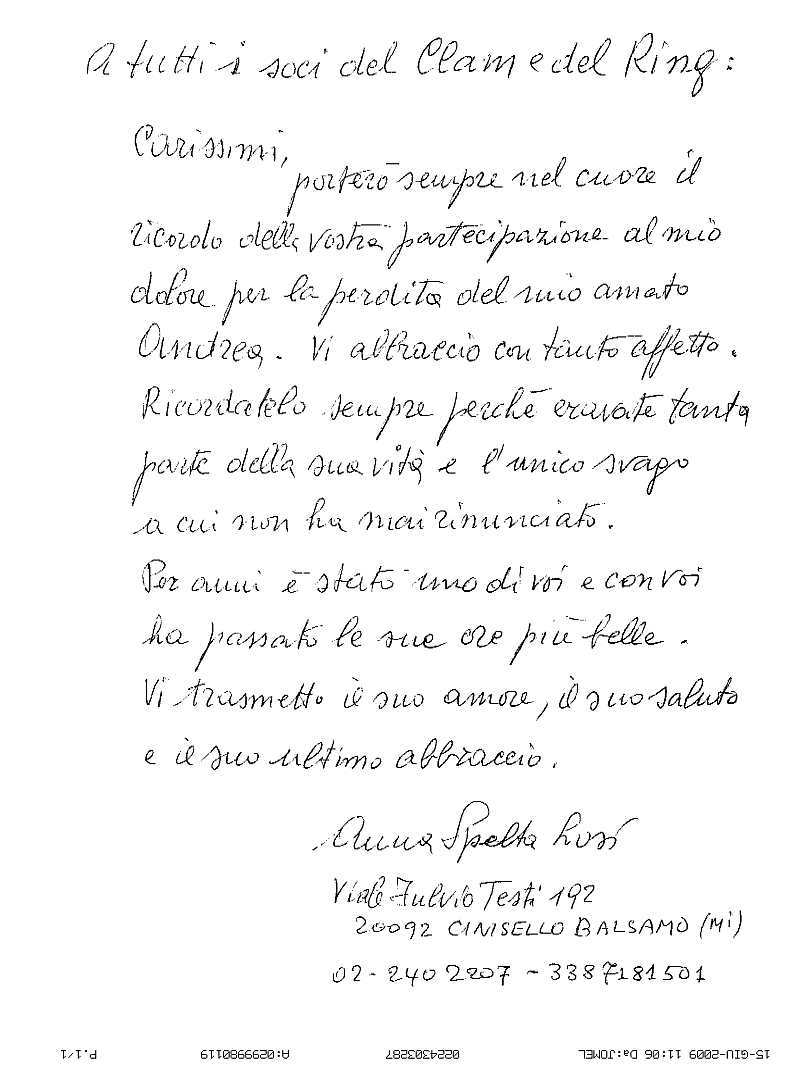 A tutti i soci del Clam e del Ring:
Carissimi,
porterò sempre nel cuore il
ricordo della vostra partecipazione al mio
dolore per la perdita del mio amato
Andrea. Vi abbraccio con tanto affetto.
Ricordatelo sempre perchè eravate tanta
parte della sua vita e l'unico svago
a cui non ha mai rinunciato.
Per anni è stato uno di voi e con voi
ha passato le sue ore più belle.
Vi trasmetto il suo amore, il suo saluto
e il suo ultimo abbraccio.
Anna Spelta Losi
Viale Fulvio Testi 192
20092 CINISELLO BALSAMO (Mi)
02-240 2207 - 3387181501
15-GIU-2009 11:06 Da:JOMEL 0224303287 A:0299980119 P.1/1